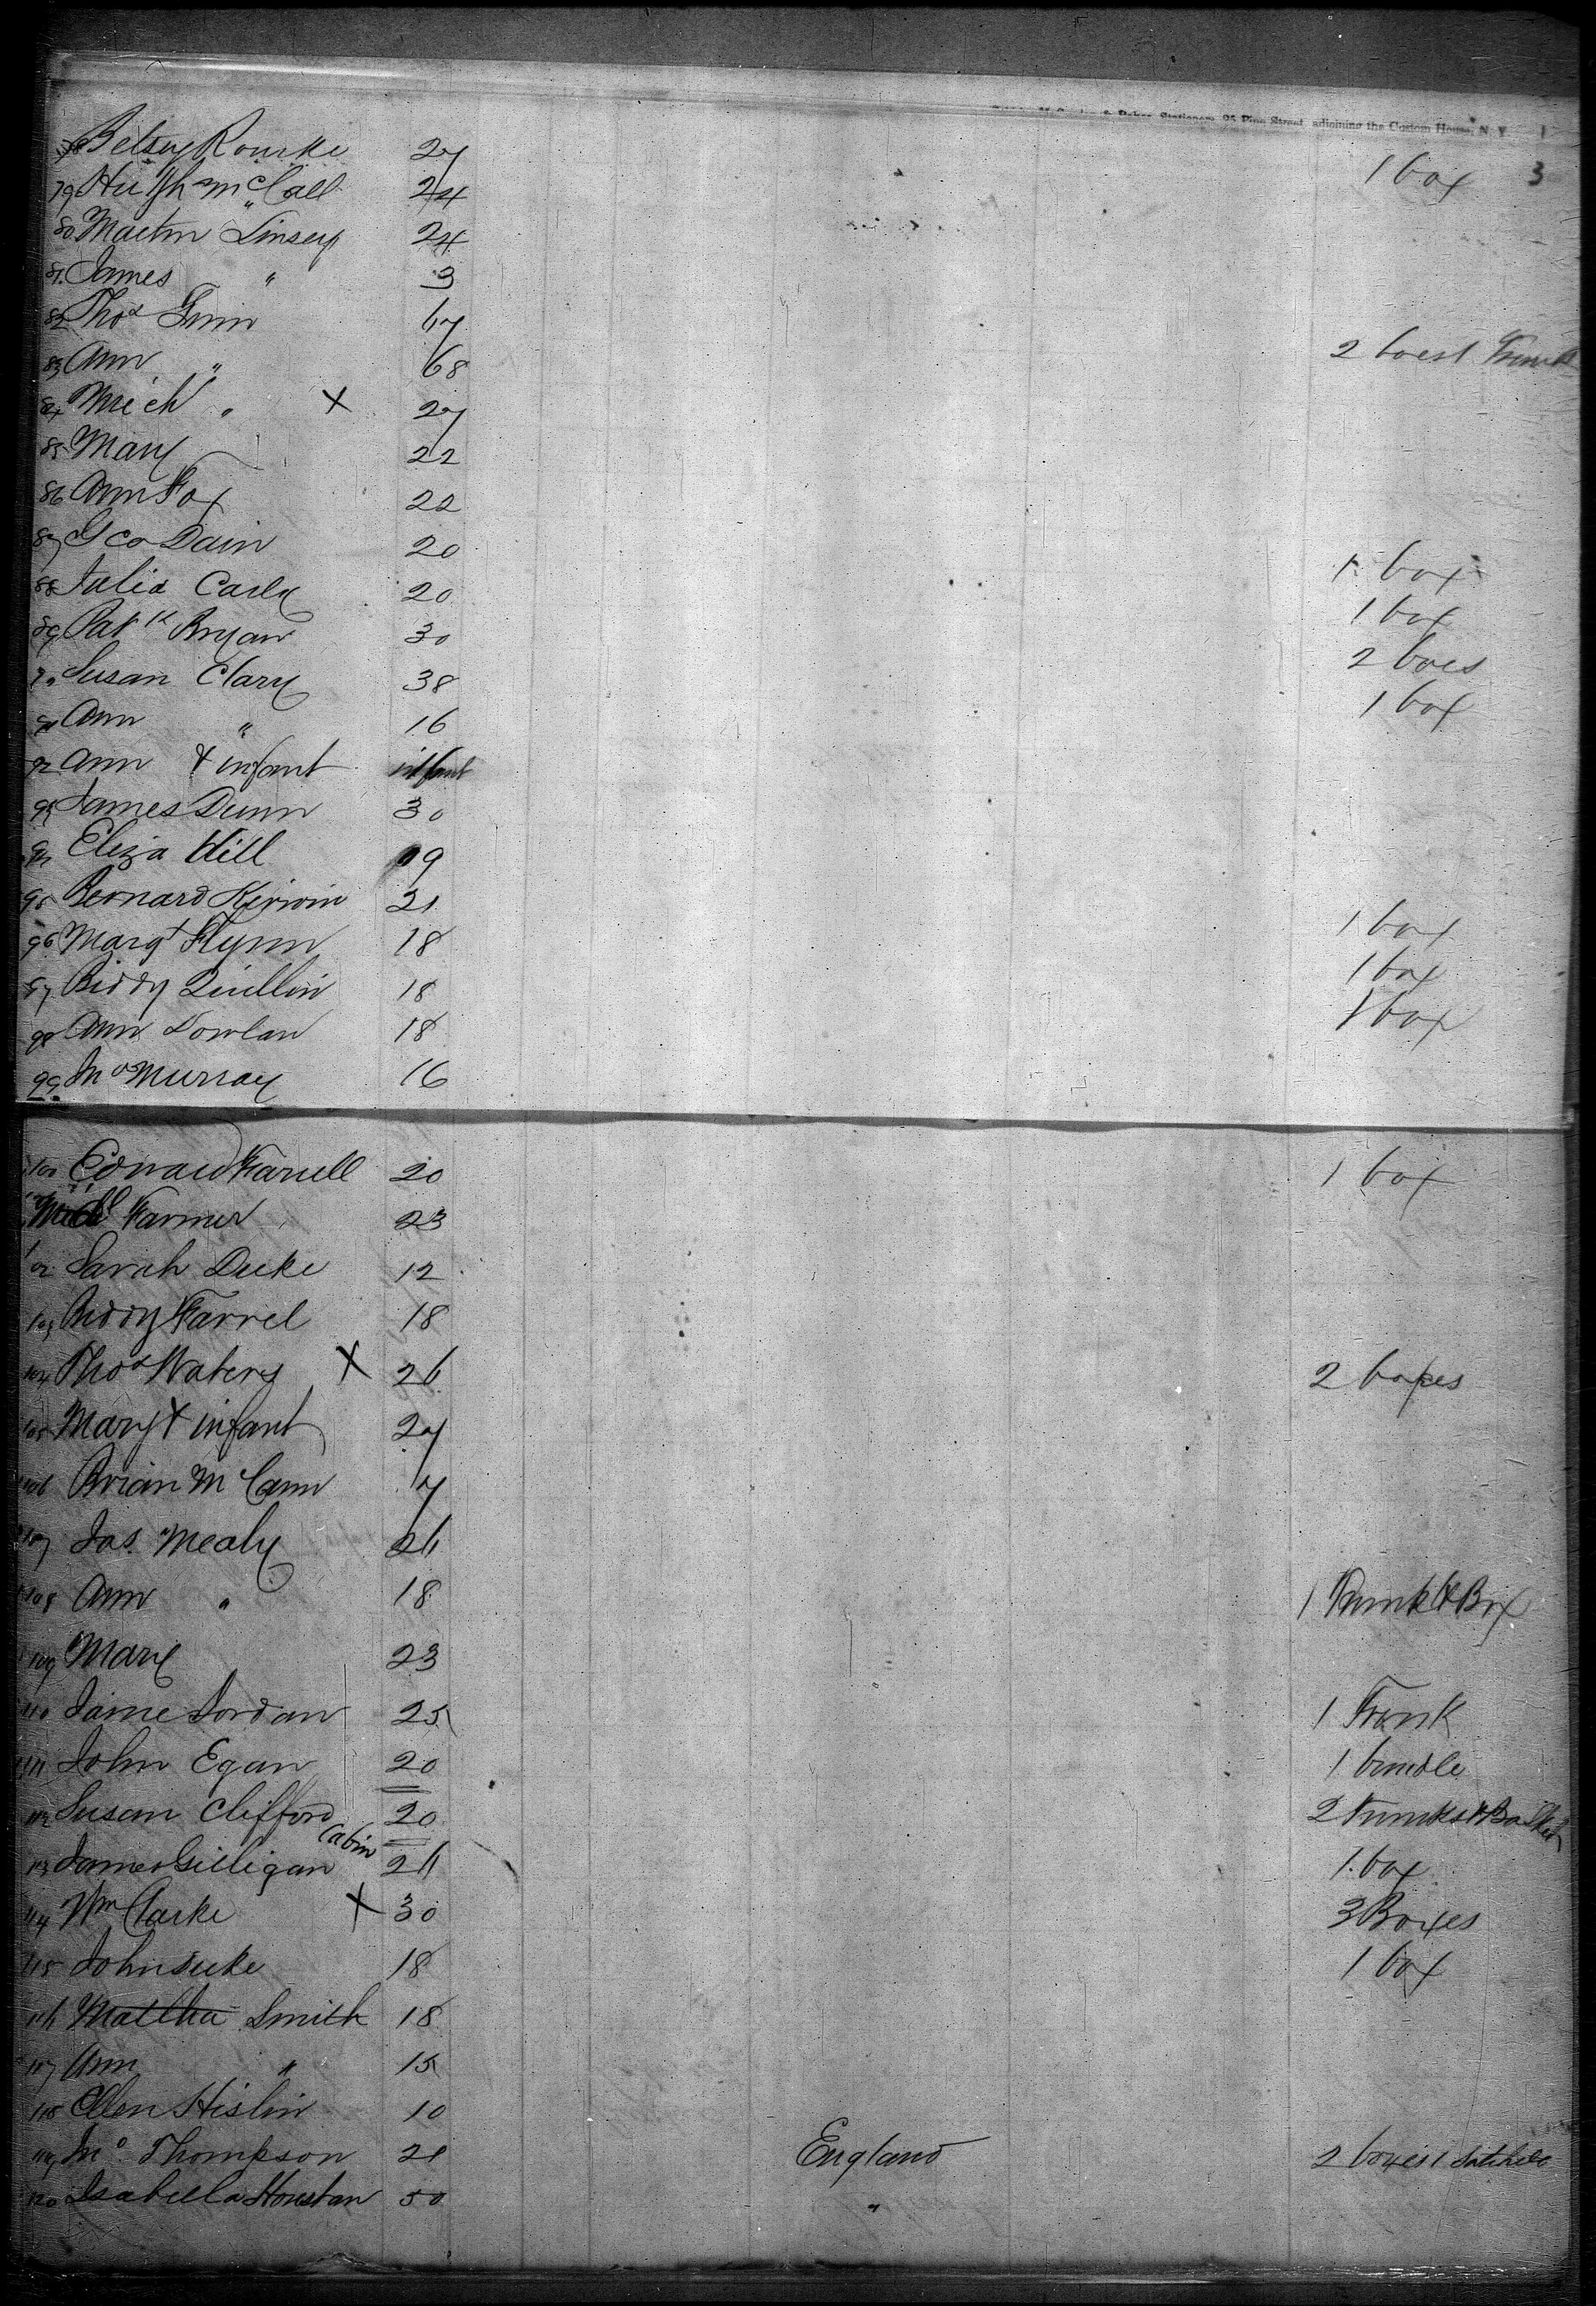 Stationers, 95 Pine Street, adjoining the Custom House, N. Y. 1
3
78 Betsy Rourke 27 1 box
79 Hugh McCall 24
80 Martin Linsey 24
81. James " 3
82 Thos Finn 67
83 Ann " 68 2 boxes 1 Trunk
84 Mich " X 27
85 Mary 22
86 Ann Fox 22
87 Geo Dain 20 1 box
88 Julia Carly 20 1 box
89 Patk Bryan 30 2 boxes
90 Susan Clary 38 1 box
91 Ann " 16
92 Ann & infant infant
93 James Dunn 30
94 Eliza Hill 19
95 Bernard Kirwin 21 1 box
96 Margt Flynn 18 1 box
97 Biddy Quillin 18 1 box
98 Ann Dowlan 18
99 Jno Murray 16
100 Edward Farrell 20 1 box
101 Farmer 23
102 Sarah Duke 12
103 Biddy Farrel 18
104 Thos Waters X 26 2 boxes
105 Mary & infant 27
106 Brian McCann 17
107 Jas. Mealy 26
108 Ann " 18 1 Trunk & Box
109 Mary 23
110 Jame Jordan 25 1 Trunk
111 John Egan 20 1 bundle
112 Susan Clifford 20 2 Trunks & Basket
Cabin
113 James Gilligan 26 1 box
114 Wm Clarke X 30 3 Boxes
115 John Duke 18 1 box
116 Martha Smith 18
117 Ann " 15
118 Ellen Hislin 10
119 Jno Thompson 21 England 2 boxes 1 Satchele
120 Isabella Houstan 50 "